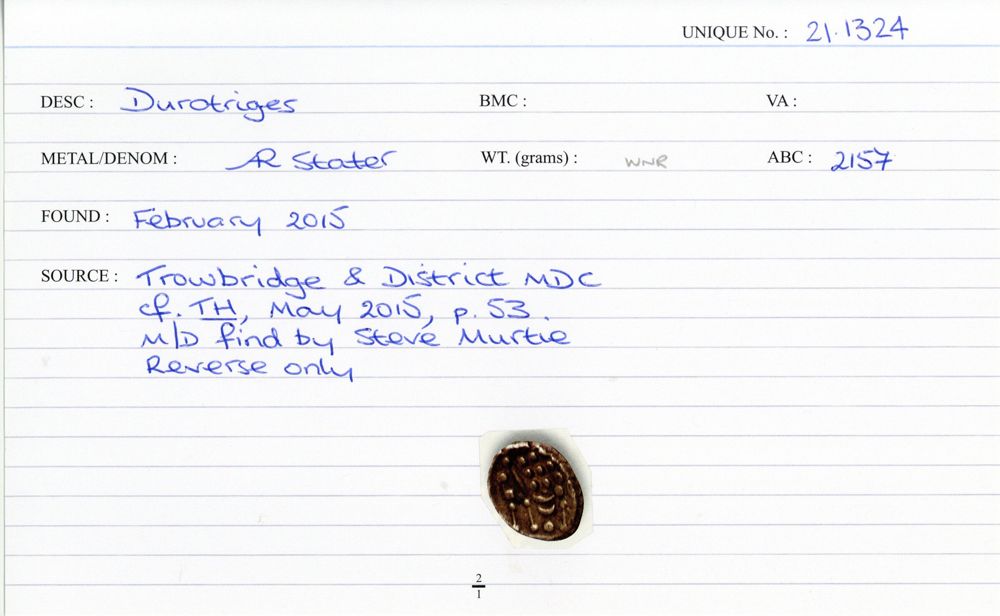 UNIQUE No. : 21.1324
DESC : Durotriges BMC : VA :
METAL/DENOM : AR Stater WT. (grams) : WNR ABC : 2157
FOUND : February 2015
SOURCE : Trowbridge & District MDC
cf. TH, May 2015, p. 53.
M/D find by Steve Murtie
Reverse only
2
1